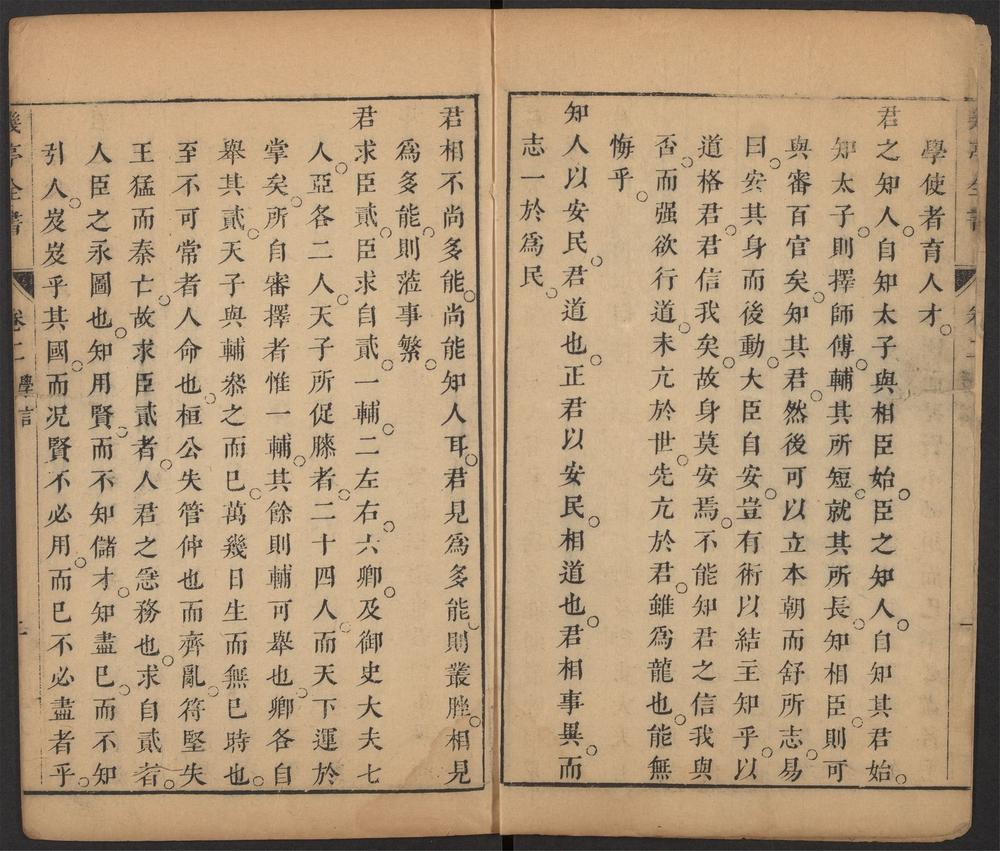 學使者育人才。
君之知人。自知太子與相臣始。臣之知人。自知其君始。
知太子。則擇師傅。輔其所短。就其所長。知相臣。則可
與審百官矣。知其君。然後可以立本朝而舒所志。易
曰。安其身而後動。大臣自安。豈有術以結主知乎。以
道格君。君信我矣。故身莫安焉。不能知君之信我與
否。而强欲行道。未亢於世。先亢於君。雖爲龍也。能無
悔乎。
知人以安民。君道也。正君以安民。相道也。君相事異。而
志一於爲民。
君相不尚多能。尚能知人耳。君見爲多能。則叢脞。相見
爲多能。則蒞事繁。
君求臣貳。臣求自貳。一輔。二左右。六卿。及御史大夫七
人。亞各二人。天子所促膝者。二十四人。而天下運於
掌矣。所自審擇者。惟一輔。其餘則輔可舉也。卿各自
舉其貳。天子與輔叅之而已。萬幾日生而無已時也。
至不可常者。人命也。桓公失管仲也而齊亂。符堅失
王猛而秦亡。故求臣貳者。人君之急務也。求自貳者。
人臣之永圖也。知用賢。而不知儲才。知盡已。而不知
引人。岌岌乎其國。而况賢不必用。而已不必盡者乎。
幾亭全書
卷二
學言